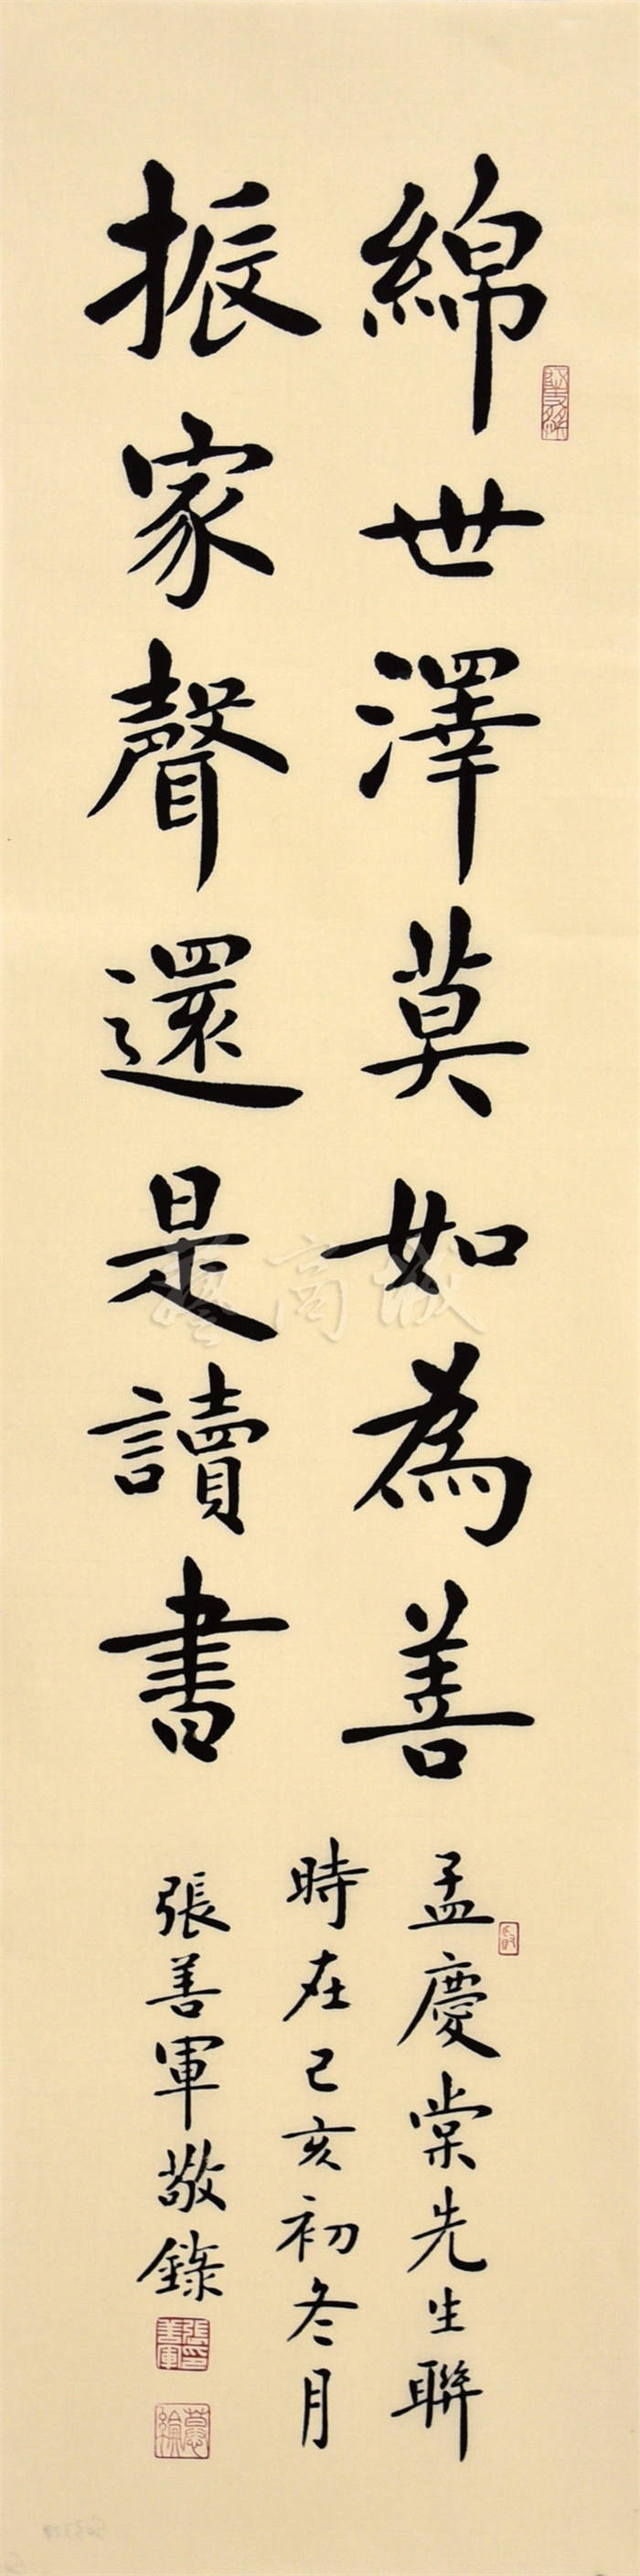 綿世澤莫如為善
振家聲還是讀書
孟慶棠先生聯
時在己亥初冬月
張善軍敬錄